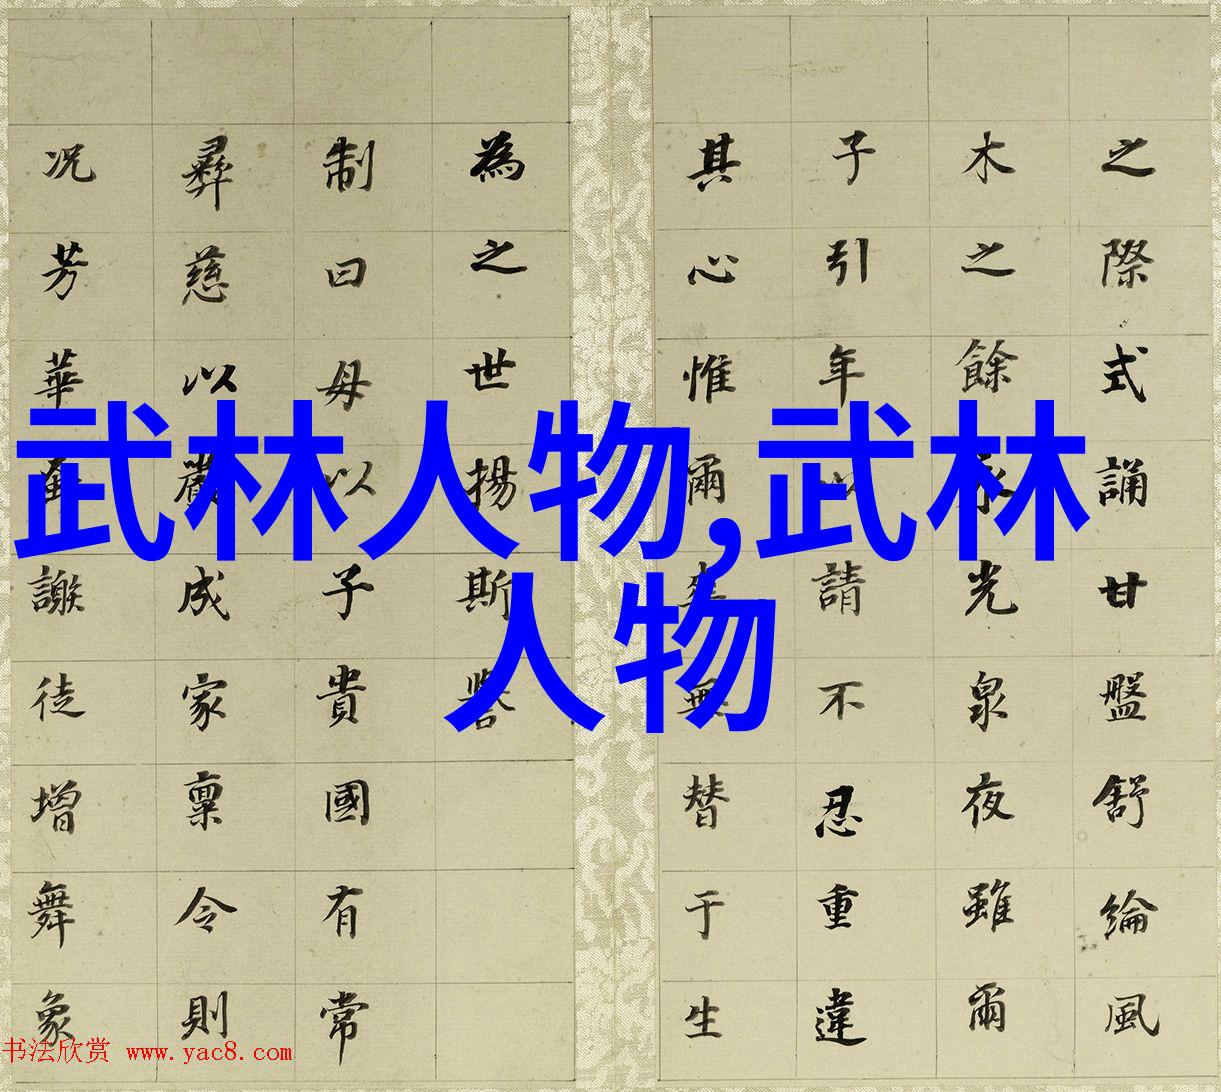 之際式誦甘盤舒綸風
木之餘光泉夜雖爾
子引年以請不忍重違
其心惟爾來無替于生
為之世揚斯
制曰母以子貴國有常
彝慈以嚴成家稟令則
况芳華謝徒增舞象
武林人物,武林
人物
书法欣赏 www.yac8.com